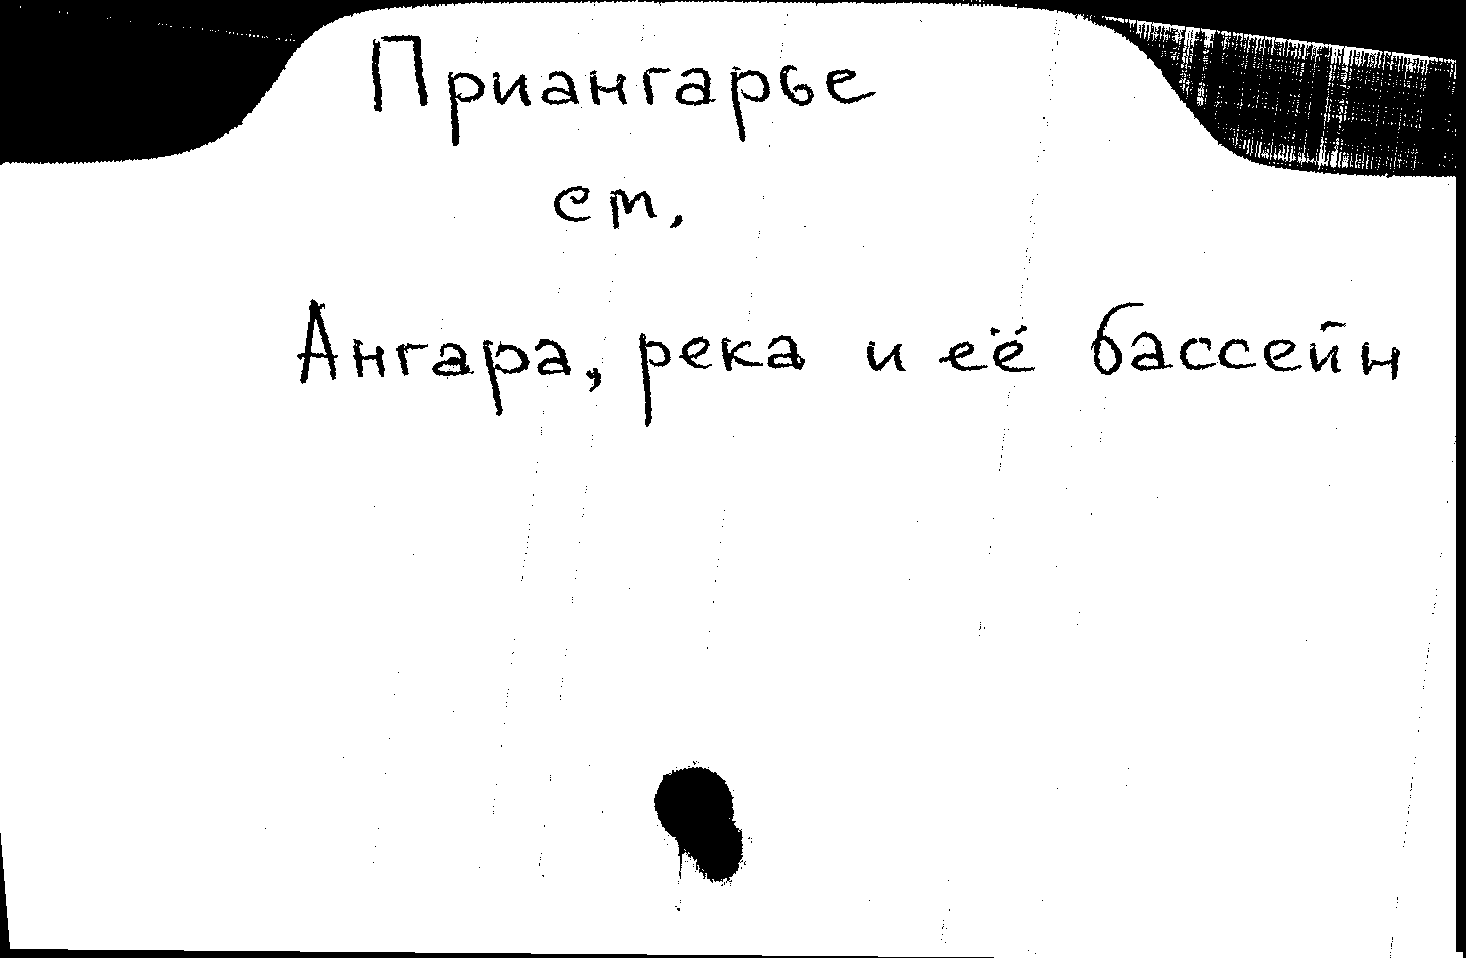 Приангарье
ст.
Ангара, река и её бассейн